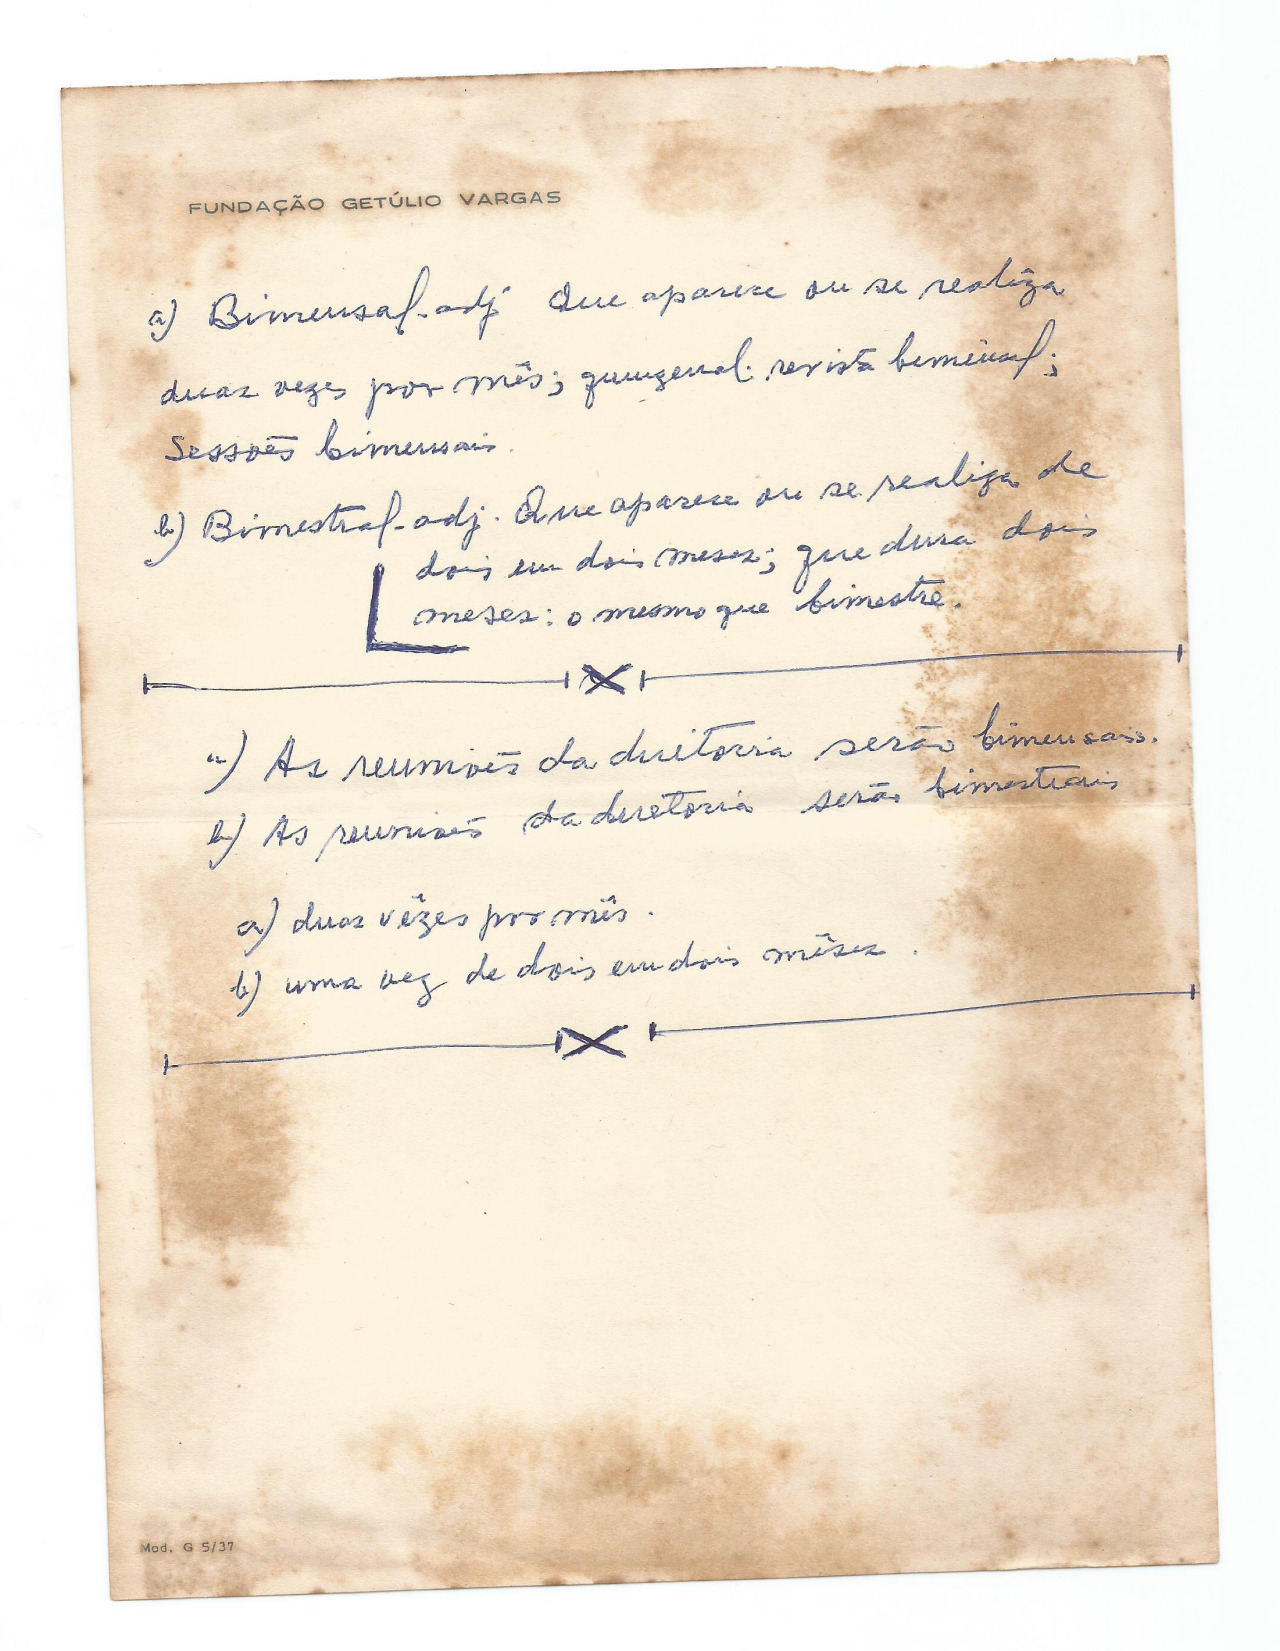 FUNDAÇÃO GETÚLIO VARGAS
a) Bimensal - adj Que aparece ou se realiza
duas vezes por mês; quinzenal: revista bimensal;
Sessões bimensais.
b) Bimestral - adj. Que aparece ou se realiza de
dois em dois meses; que dura dois
meses: o mesmo que bimestre.
X
a) As reuniões da diretoria serão bimensais.
b) As reuniões da diretoria serão bimestrais
a) duas vêzes por mês.
b) uma vez de dois em dois mêses.
X
Mod. G 5/37